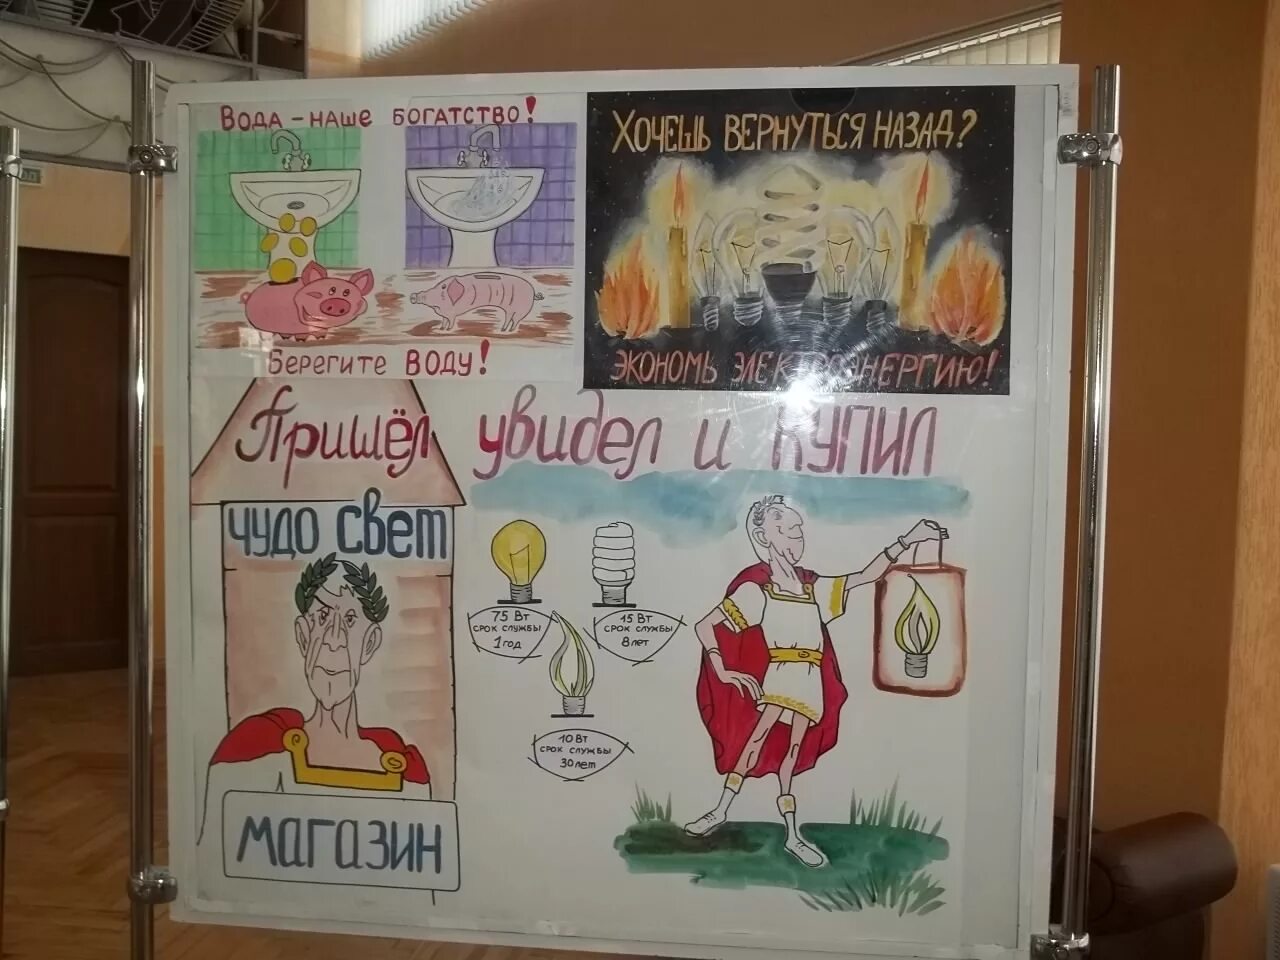 Вода – наше богатство!
Берегите воду!
Хочешь вернуться назад?
Экономь электроэнергию!
Пришёл увидел и купил
чудо свет
магазин
75 Вт
срок службы
1 год
15 Вт
срок службы
8 лет
10 Вт
срок службы
30 лет